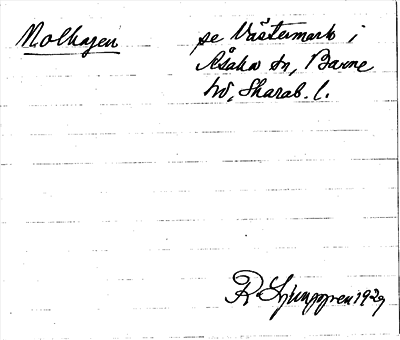 Molhagen
se Västermark i
Åsaka sn, Barne
hd, Skarab. l.
R Ljunggren 1929